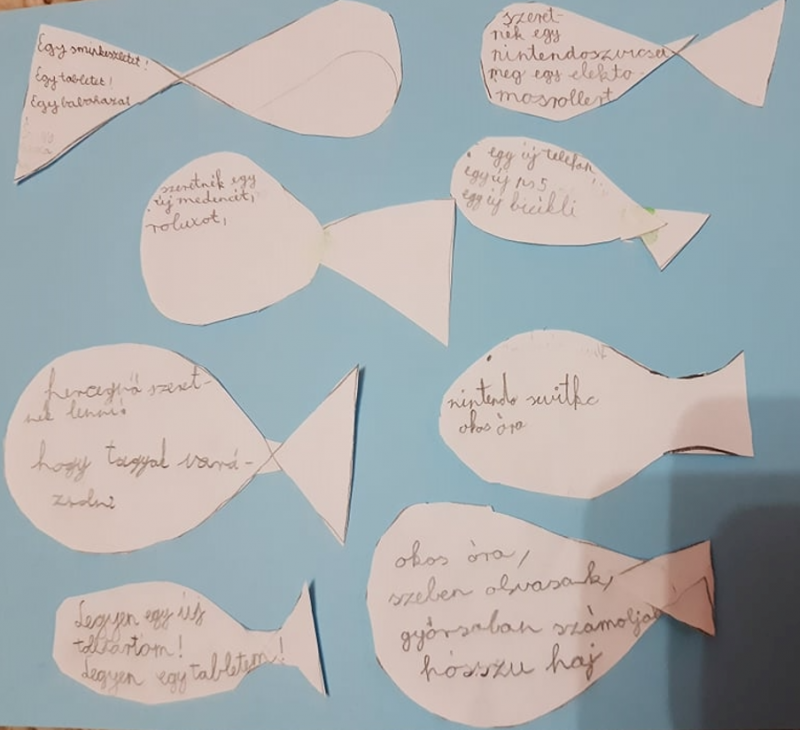 Egy sminkeszletet!
Egy tabletet!
Egy babaházat
szeret-
nék egy
nintendoszvicset
meg egy elekto-
mosrollert
szeretnék egy
új medencét,
roluxot,
egy új telefon
egy új ps5
egy új bicikli
hercegnő szeret-
nék lenni!
hogy tudjak vará-
zsolni
nintendo switkc
okos óra
Legyen egy új
tolltartóm!
Legyen egy tabletem!
okos óra,
szeben olvasak,
gyórsaban számoljak
hósszu haj